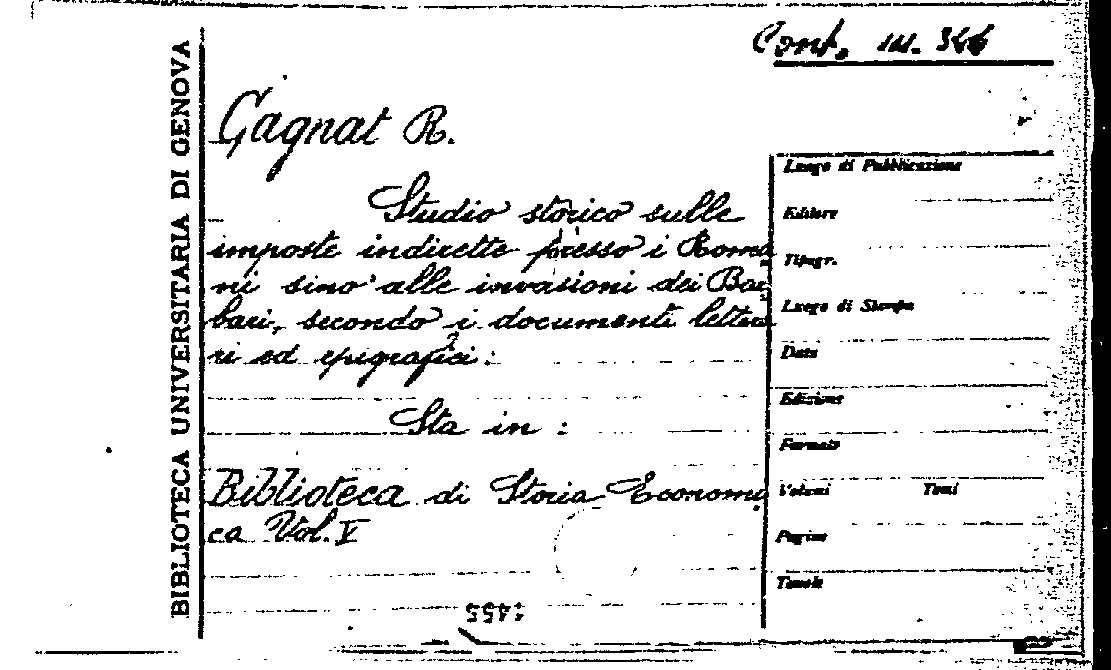 Cont. III. 346
BIBLIOTECA UNIVERSITARIA DI GENOVA
Cagnat R.
Studio storico sulle
imposte indirette presso i Roma
ni sino alle invasioni dei Bar
bari, secondo i documenti lettera
ri ed epigrafici:
Sta in:
Biblioteca di Storia Economi
ca Vol. V
Luogo di Pubblicazione
Editore
Tipogr.
Luogo di Stampa
Data
Edizione
Formato
Volumi Tomi
Pagine
Tavole